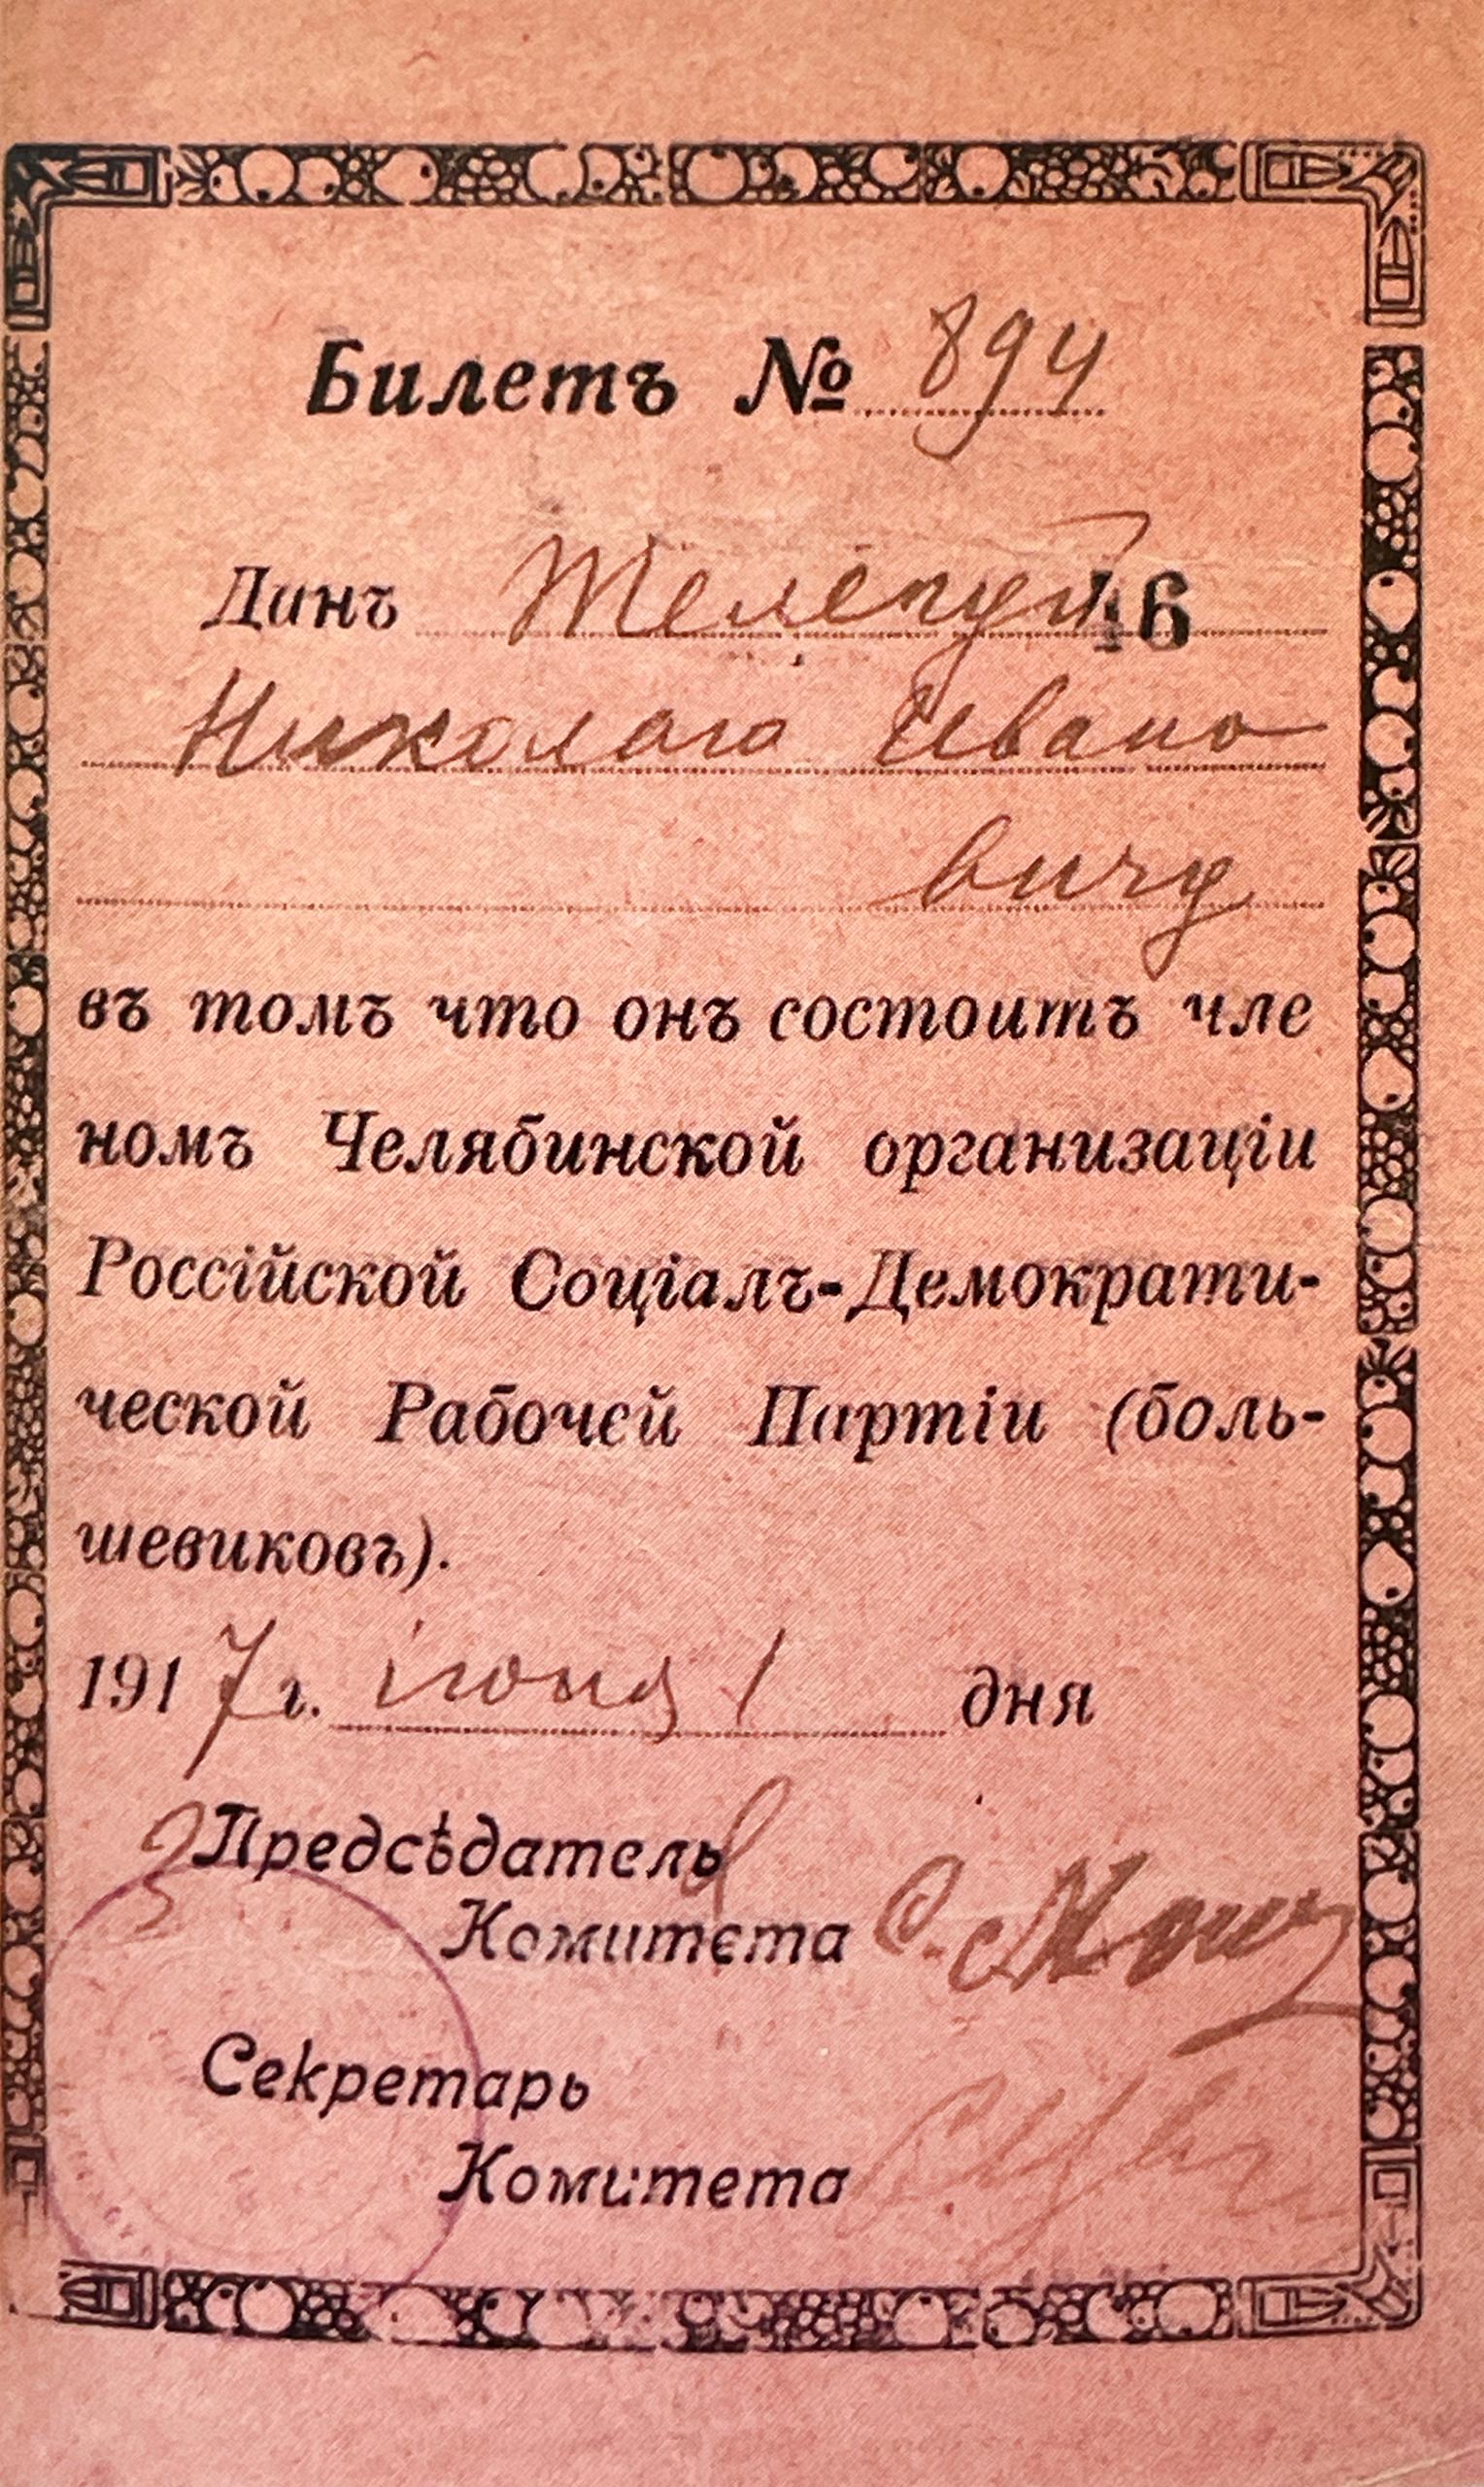 Билетъ № 894
Данъ 46
Николаю Ивано
вичу
въ томъ что онъ состоитъ чле
номъ Челябинской организаціи
Россійской Соціалъ-Демократи-
ческой Рабочей Партіи (боль-
шевиковъ).
1917 г. іюня 1 дня
Предсѣдатель
Комитета
Секретарь
Комитета